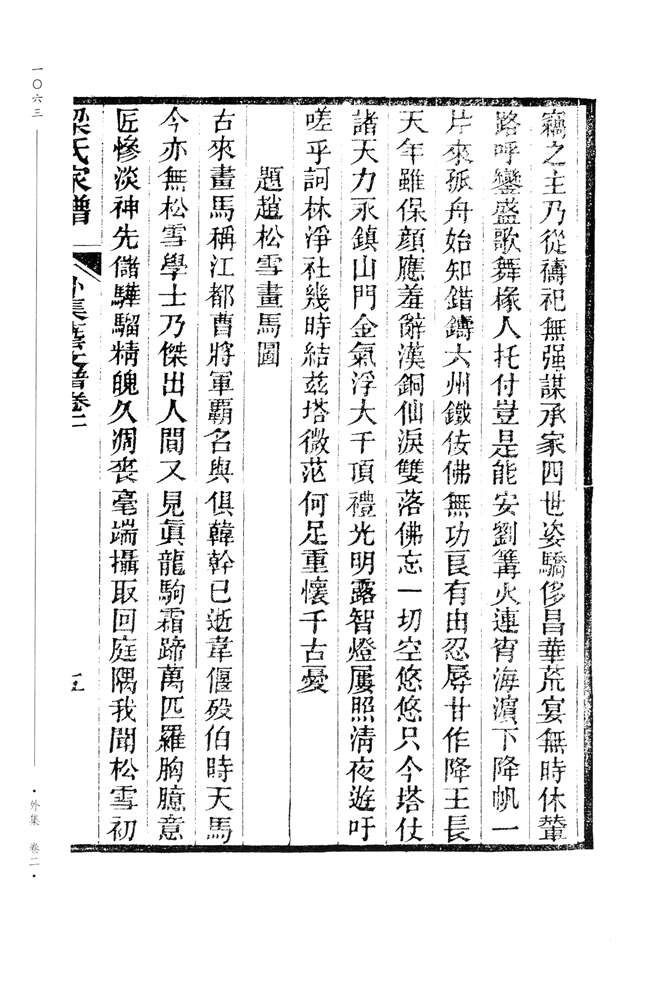 竊之主乃從禱祀無强謀承家四世姿驕侈昌華荒宴無時休輦
路呼鑾盛歌舞椽人托付豈是能安劉篝火連宵海濵下降帆一
片來孤舟始知錯鑄六州鐵佞佛無功良有由忍辱甘作降王長
天年雖保顏應羞辭漢銅仙淚雙落佛忘一切空悠悠只今塔仗
諸天力永鎮山門金氣浮大千頂禮光明露智燈屢照清夜遊吁
嗟乎訶林淨社幾時結茲塔微范何足重懷千古憂
題趙松雪畫馬圖
古來畫馬稱江都曹將軍霸名與俱韓幹已逝韋偃歿伯時天馬
今亦無松雪學士乃傑出人間又見眞龍駒霜蹄萬匹羅胸臆意
匠慘淡神先儲驊騮精魄久凋喪毫端攝取回庭隅我聞松雪初
梁氏家譜
外集藝文譜卷二
五
一〇六三
·外集 卷二·